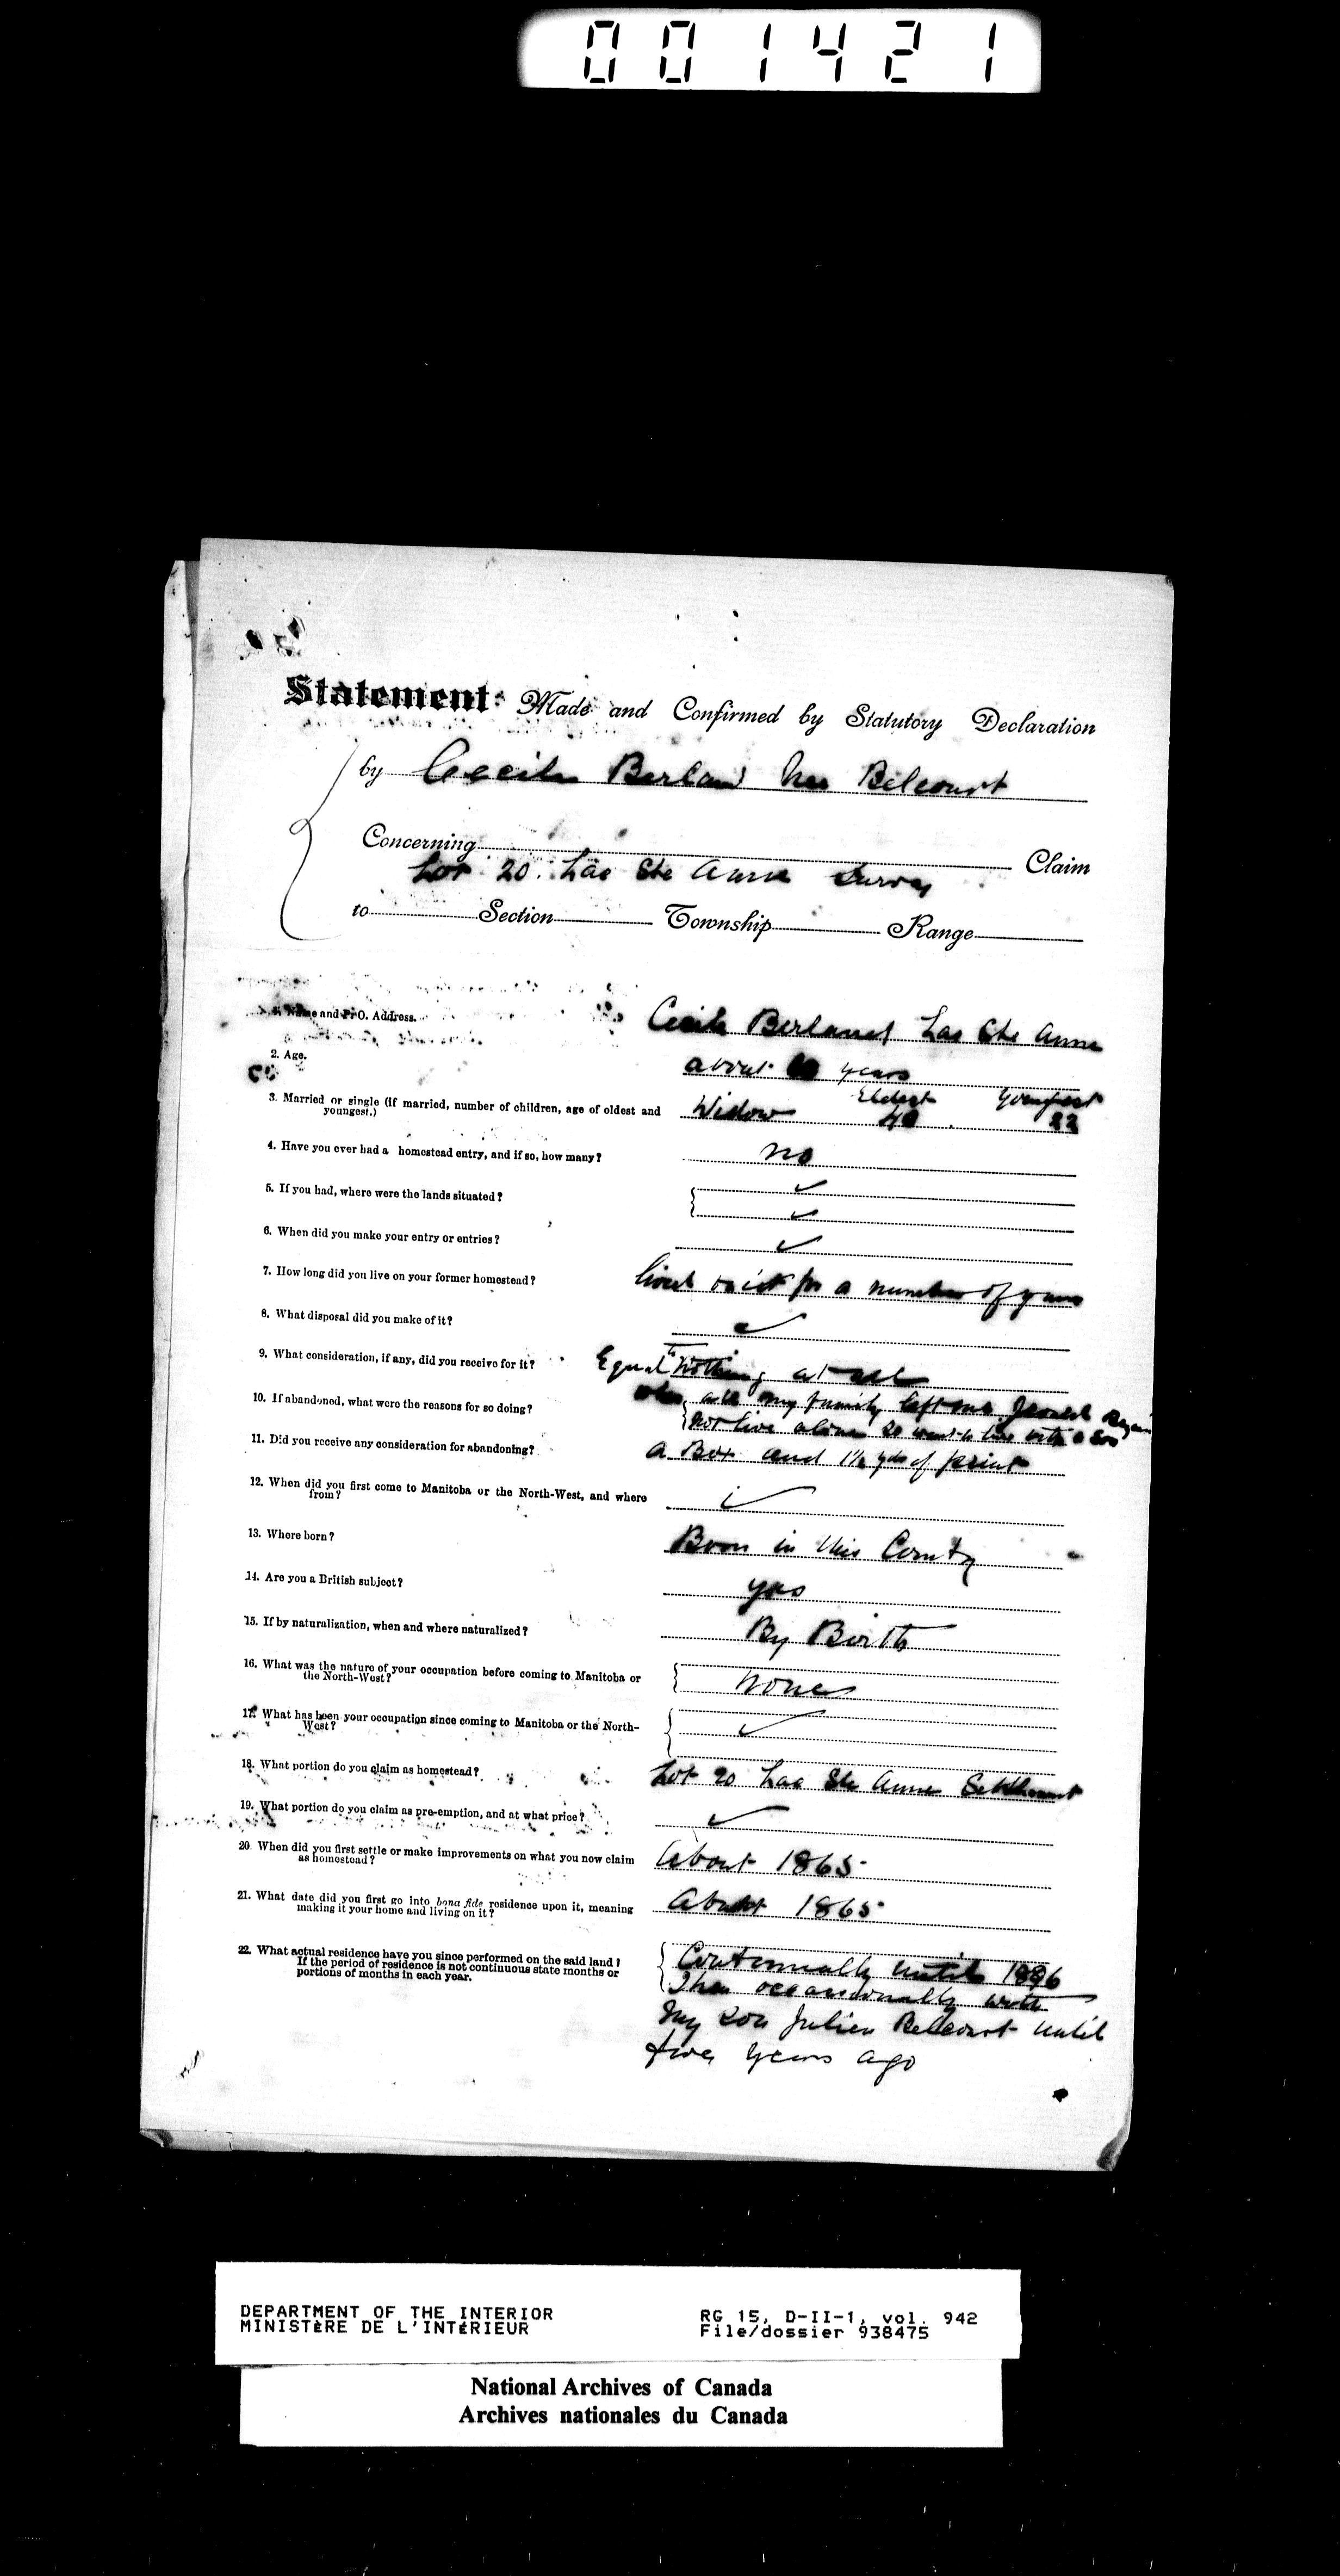 001421
Statement Made and Confirmed by Statutory Declaration
by Cecile Berland nee Belcourt
Concerning Claim
Lot 20 Lac Ste Anne Survey
to Section Township Range
1. Name and P. O. Address. Cecile Berland Lac Ste Anne
2. Age. about years
3. Married or single (if married, number of children, age of oldest and youngest.) Widow Eldest 40 Youngest 22
4. Have you ever had a homestead entry, and if so, how many? no
5. If you had, where were the lands situated? ✓
✓
6. When did you make your entry or entries? ✓
7. How long did you live on your former homestead? lived on it for a number of years
8. What disposal did you make of it? ✓
9. What consideration, if any, did you receive for it? Equal to nothing at all
10. If abandoned, what were the reasons for so doing? when all my family left me I would
not live alone so went to live with a son
11. Did you receive any consideration for abandoning? a Box and 1½ yds of print
12. When did you first come to Manitoba or the North-West, and where from? ✓
13. Where born? Born in this Country
14. Are you a British subject? yes
15. If by naturalization, when and where naturalized? By Birth
16. What was the nature of your occupation before coming to Manitoba or the North-West? none
17. What has been your occupation since coming to Manitoba or the North-West? ✓
18. What portion do you claim as homestead? Lot 20 Lac Ste Anne Settlement
19. What portion do you claim as pre-emption, and at what price? ✓
20. When did you first settle or make improvements on what you now claim as homestead? About 1865
21. What date did you first go into bona fide residence upon it, meaning making it your home and living on it? About 1865
22. What actual residence have you since performed on the said land? If the period of residence is not continuous state months or portions of months in each year. Continually until 1886
Then occasionally with
my son Julien Belcourt until
five years ago
DEPARTMENT OF THE INTERIOR
MINISTÈRE DE L'INTÉRIEUR
RG 15, D-II-1, vol. 942
File/dossier 938475
National Archives of Canada
Archives nationales du Canada